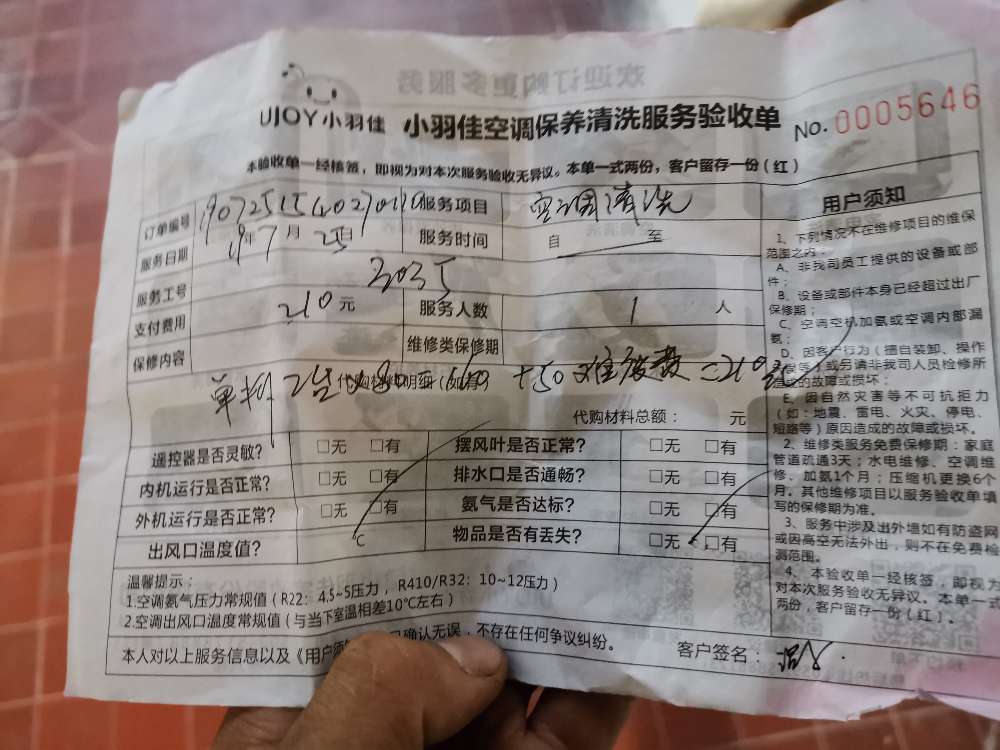 欢迎订购更多服务
UJOY小羽佳 小羽佳空调保养清洗服务验收单 No. 0005646
本验收单一经核签，即视为对本次服务验收无异议。本单一式两份，客户留存一份（红）
订单编号 服务项目 空调清洗
服务日期 19年7月25日 服务时间 自 至
服务工号 3035
支付费用 210元 服务人数 1 人
保修内容 维修类保修期
代购材料明细
+50 =210
代购材料总额： 元
遥控器是否灵敏？ □无 □有 摆风叶是否正常？ □无 □有
内机运行是否正常？ □无 □有 排水口是否通畅？ □无 □有
外机运行是否正常？ □无 □有 氨气是否达标？ □无 □有
出风口温度值？ ℃ 物品是否有丢失？ □无 □有
温馨提示：
1.空调氨气压力常规值（R22：4.5~5压力，R410/R32：10~12压力）
2.空调出风口温度常规值（与当下室温相差10℃左右）
本人对以上服务信息以及《用户须 确认无误，不存在任何争议纠纷。
客户签名：
用户须知
1、下列情况不在维修项目的维保
范围之内：
A、非我司员工提供的设备或部
件；
B、设备或部件本身已经超过出厂
保修期；
C、空调空机加氨或空调内部漏
氨；
D、因客户行为（擅自装卸、操作
等）或另请非我司人员检修所
造成的故障或损坏；
E、因自然灾害等不可抗拒力
（如：地震、雷电、火灾、停电、
短路等）原因造成的故障或损坏。
2、维修类服务免费保修期：家庭
管道疏通3天；水电维修、空调维
修、加氨1个月；压缩机更换6个
月。其他维修项目以服务验收单填
写的保修期为准。
3、服务中涉及出外墙如有防盗网
或因高空无法外出，则不在免费检
测范围。
4、本验收单一经核签，即视为
对本次服务验收无异议。本单一式
两份，客户留存一份（红）。